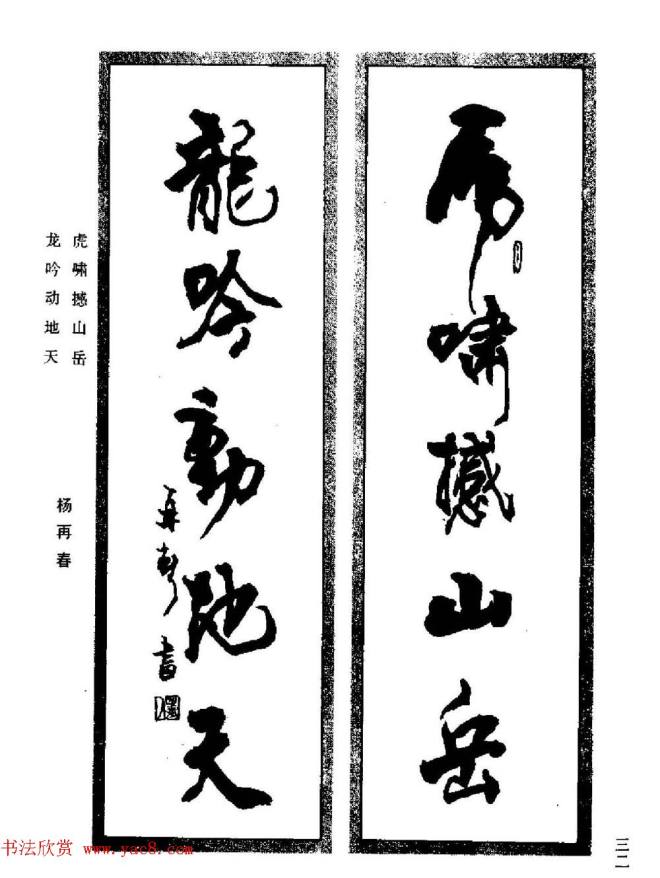 虎嘯撼山岳
龍吟動地天
再春書
虎啸撼山岳
龙吟动地天
杨再春
书法欣赏 www.yac8.com